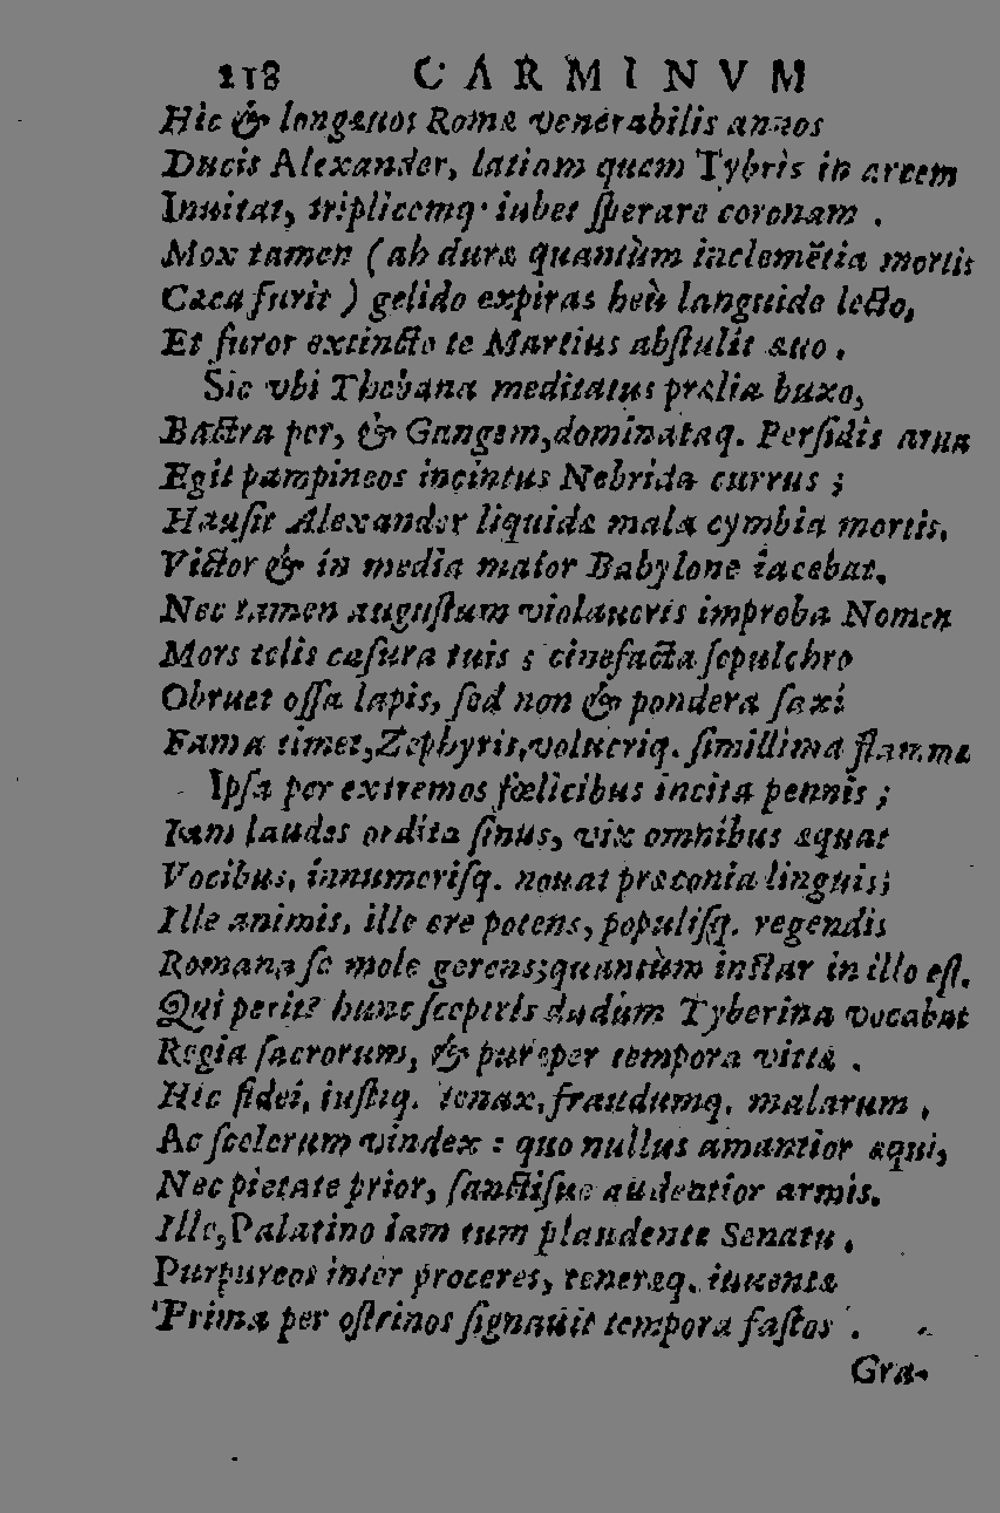 218 CARMINVM
Hic & longæuos Romæ venerabilis annos
Ducis Alexander, latiam quem Tybris in arcem
Inuitat, triplicemq; iubet ſperare coronam .
Mox tamen ( ah duræ quantùm inclemẽtia mortis
Cæca furit ) gelido expiras heù languide lecto,
Et furor extincto te Martius abſtulit æuo .
Sic vbi Thebana meditatus prælia buxo,
Bactra per, & Gangem, dominataq. Perſidis arua
Egit pampineos incintus Nebrida currus ;
Hauſit Alexander liquidæ mala cymbia mortis,
Victor & in media maior Babylone iacebat.
Nec tamen auguſtum violaueris improba Nomen
Mors telis caſura tuis ; cinefacta ſepulchro
Obruet oſſa lapis, ſed non & pondera ſaxi
Fama timet, Zephyris, volucriq. ſimillima flammæ
Ipſa per extremos fœlicibus incita pennis ;
Iam laudes ordita ſinus, vix omnibus æquat
Vocibus, innumeriſq. nouat præconia linguis;
Ille animis, ille ore potens, populiſq. regendis
Romana ſe mole gerens; quantùm inſtar in illo eſt,
Qui perit? hunc ſceptris dudum Tyberina vocabat
Regia ſacrorum, & pureper tempora vittæ .
Hic fidei, iuſtiq. tenax, fraudumq. malarum ,
Ac ſcelerum vindex : quo nullus amantior æqui,
Nec pietate prior, ſanctiſue audentior armis.
Ille, Palatino iam tum plaudente Senatu ,
Purpureos inter proceres, teneræq. iuuentæ
Prima per oſtrinos ſignauit tempora faſtos .
Gra-